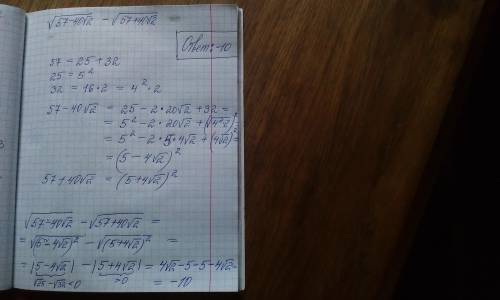 √57-40√2 - √57+40√2
Ответ: -10
57 = 25 + 32
25 = 5²
32 = 16*2 = 4²*2
57-40√2 = 25 - 2*20√2 + 32 =
= 5² - 2*20√2 + (√4²2)² =
= 5² - 2*5*4√2 + (4√2)² =
= (5-4√2)²
57+40√2 = (5+4√2)²
√57-40√2 - √57+40√2 =
= √(5-4√2)² - √(5+4√2)² =
= |5-4√2| - |5+4√2| = 4√2-5-5-4√2=
√25-√32<0 >0 = -10